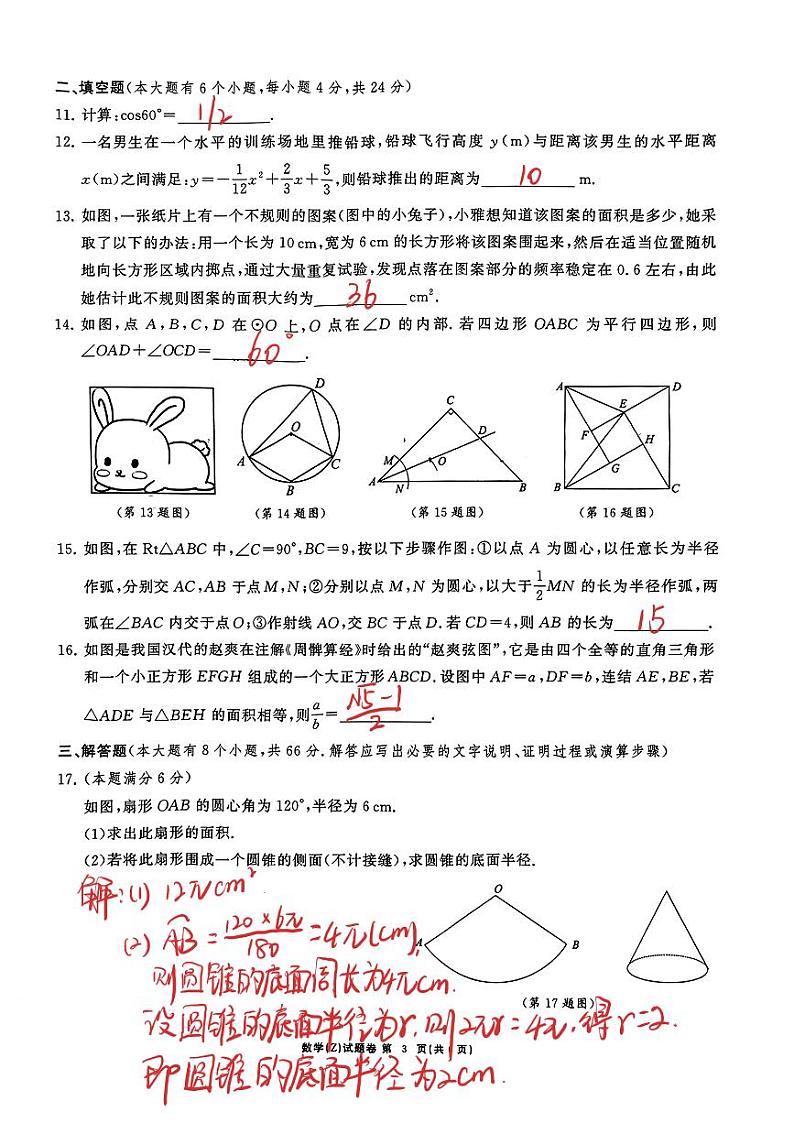 二、填空题(本大题有6个小题,每小题4分,共24分)
11. 计算:cos60°= 1/2 .
12. 一名男生在一个水平的训练场地里推铅球,铅球飞行高度 y(m)与距离该男生的水平距离
x(m)之间满足:y=-1/12x²+2/3x+5/3,则铅球推出的距离为 10 m.
13. 如图,一张纸片上有一个不规则的图案(图中的小兔子),小雅想知道该图案的面积是多少,她采
取了以下的办法:用一个长为10cm,宽为6cm的长方形将该图案围起来,然后在适当位置随机
地向长方形区域内掷点,通过大量重复试验,发现点落在图案部分的频率稳定在0.6左右,由此
她估计此不规则图案的面积大约为 36 cm².
14. 如图,点 A,B,C,D 在⊙O上,O 点在∠D 的内部.若四边形 OABC 为平行四边形,则
∠OAD+∠OCD= 60° .
A B C D O
A B C D M N O
A B C D E F G H
(第13题图) (第14题图) (第15题图) (第16题图)
15. 如图,在Rt△ABC中,∠C=90°,BC=9,按以下步骤作图:①以点 A 为圆心,以任意长为半径
作弧,分别交 AC,AB 于点M,N;②分别以点M,N为圆心,以大于1/2MN 的长为半径作弧,两
弧在∠BAC 内交于点O;③作射线 AO,交 BC 于点 D.若 CD=4,则 AB 的长为 15 .
16. 如图是我国汉代的赵爽在注解《周髀算经》时给出的“赵爽弦图”,它是由四个全等的直角三角形
和一个小正方形 EFGH 组成的一个大正方形 ABCD.设图中 AF=a,DF=b,连结 AE,BE,若
△ADE 与△BEH 的面积相等,则a/b= (√5-1)/2 .
三、解答题(本大题有8个小题,共66分.解答应写出必要的文字说明、证明过程或演算步骤)
17. (本题满分6分)
如图,扇形 OAB 的圆心角为120°,半径为6cm.
(1)求出此扇形的面积.
(2)若将此扇形围成一个圆锥的侧面(不计接缝),求圆锥的底面半径.
解:(1) 12πcm²
(2) AB = 120×6π/180 =4π(cm),
O A B
则圆锥的底面周长为4πcm.
(第17题图)
设圆锥的底面半径为r,则2πr=4π,得r=2.
数学(Z)试题卷 第 3 页(共 页)
即圆锥的底面半径为2cm.